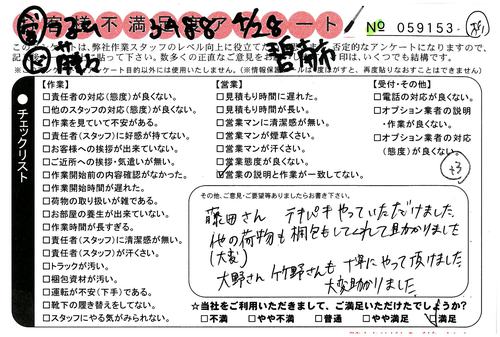 お客様不満足度アンケート
3988 4/28
碧南市
№ 059153
このアンケートは、弊社作業スタッフのレベル向上に役立てた
否定的なアンケートになりますので、
数多くの正直なご意見をお
印は、いくつでも結構です。
アンケート目的以外には使用いたしません。
【作業】
□責任者の対応(態度)が良くない。
□他のスタッフの対応(態度)が良くない。
□作業を見ていて不安がある。
□責任者(スタッフ)に好感が持てない。
□お客様への挨拶が出来ていない。
□ご近所への挨拶・気遣いが無い。
□作業開始前の内容確認がなかった。
□作業開始時間が遅れた。
□荷物の取り扱いが雑である。
□お部屋の養生が出来ていない。
□作業時間が長すぎる。
□責任者(スタッフ)に清潔感が無い。
□責任者(スタッフ)が汗くさい。
□トラックが汚い。
□梱包資材が汚い。
□運転が不安(下手)である。
□靴下の履き替えをしてない。
□スタッフにやる気がみられない。
【営業】
□見積もり時間に遅れた。
□見積もり時間が長い。
□営業マンに清潔感が無い。
□営業マンが煙草くさい。
□営業マンが汗くさい。
□営業態度が良くない。
□営業の説明と作業が一致してない。
【受付・その他】
□電話の対応が良くない。
□オプション業者の説明
・作業が良くない。
□オプション業者の対応
(態度)が良くない。
+3
●チェックリスト
その他、ご意見・ご要望等ありましたらお書き下さい。
藤田さん テキパキやっていただけました。
他の荷物も梱包もしてくれて助かりました
(大変)
大野さん 竹野さんも 丁寧にやって頂けました。
大変助かりました。
☆当社をご利用いただきまして、ご満足いただけましたでしょうか?
□不満 □やや不満 □普通 □やや満足 □満足